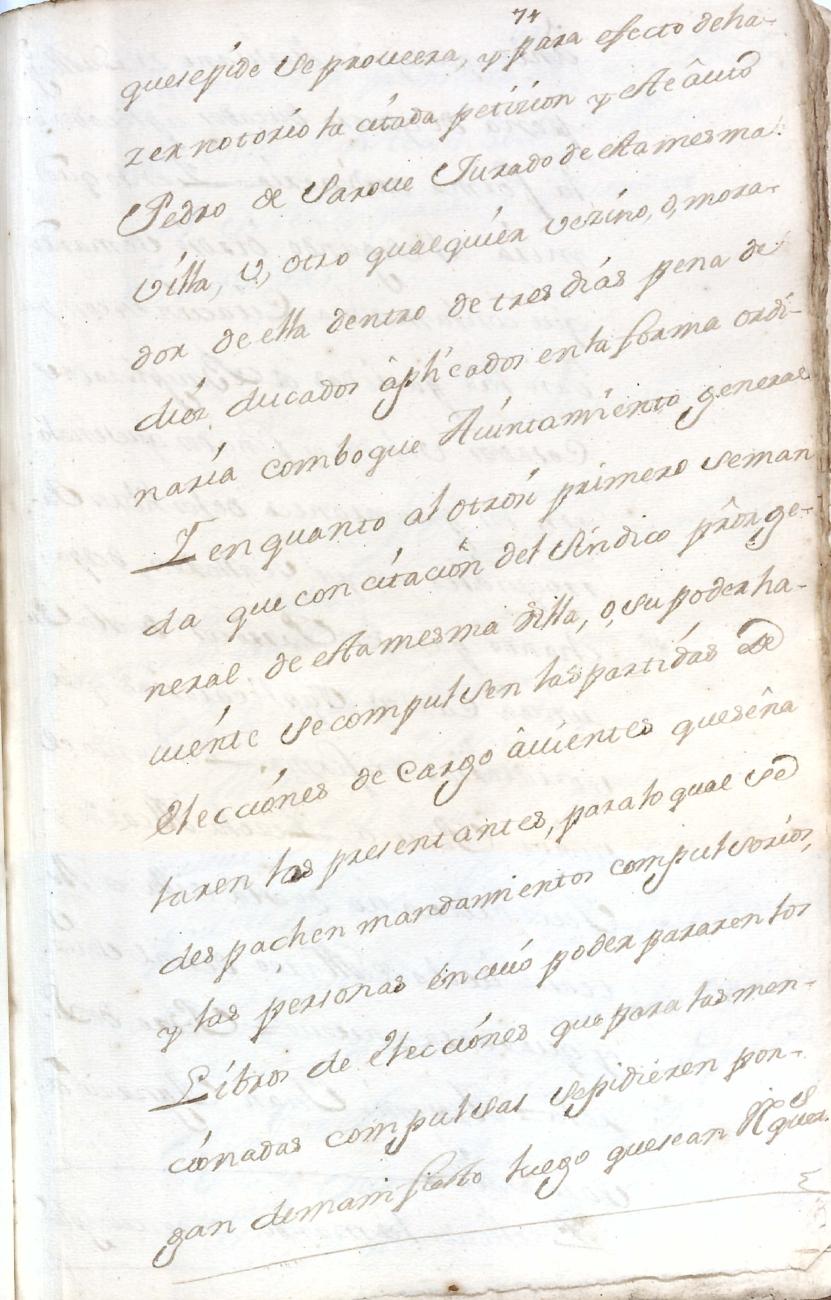 74
que se pide se proueera, y para efecto de ha-
zer notorio la citada petizion y este auto
Pedro de Jarque Jurado de esta mesma
villa, v, otro qualquier vezino, o, mora-
dor de ella dentro de tres dias pena de
diez ducados aplicados en la forma ordi-
naria comboque Aiuntamiento general
Y en quanto al otrosi primero se man
da que con citacion del sindico pror ge-
neral de esta mesma villa, o, su poder ha-
uiente se compulsen las partidas de
Elecciones de cargo auientes que seña
laren los presentantes, para lo qual se
despachen mandamientos compulsorios,
y las personas en cuio poder pararen los
Libros de Elecciones que para las men-
cionadas compulsas se pidieren pon-
gan de manifiesto luego que sean Rqueras